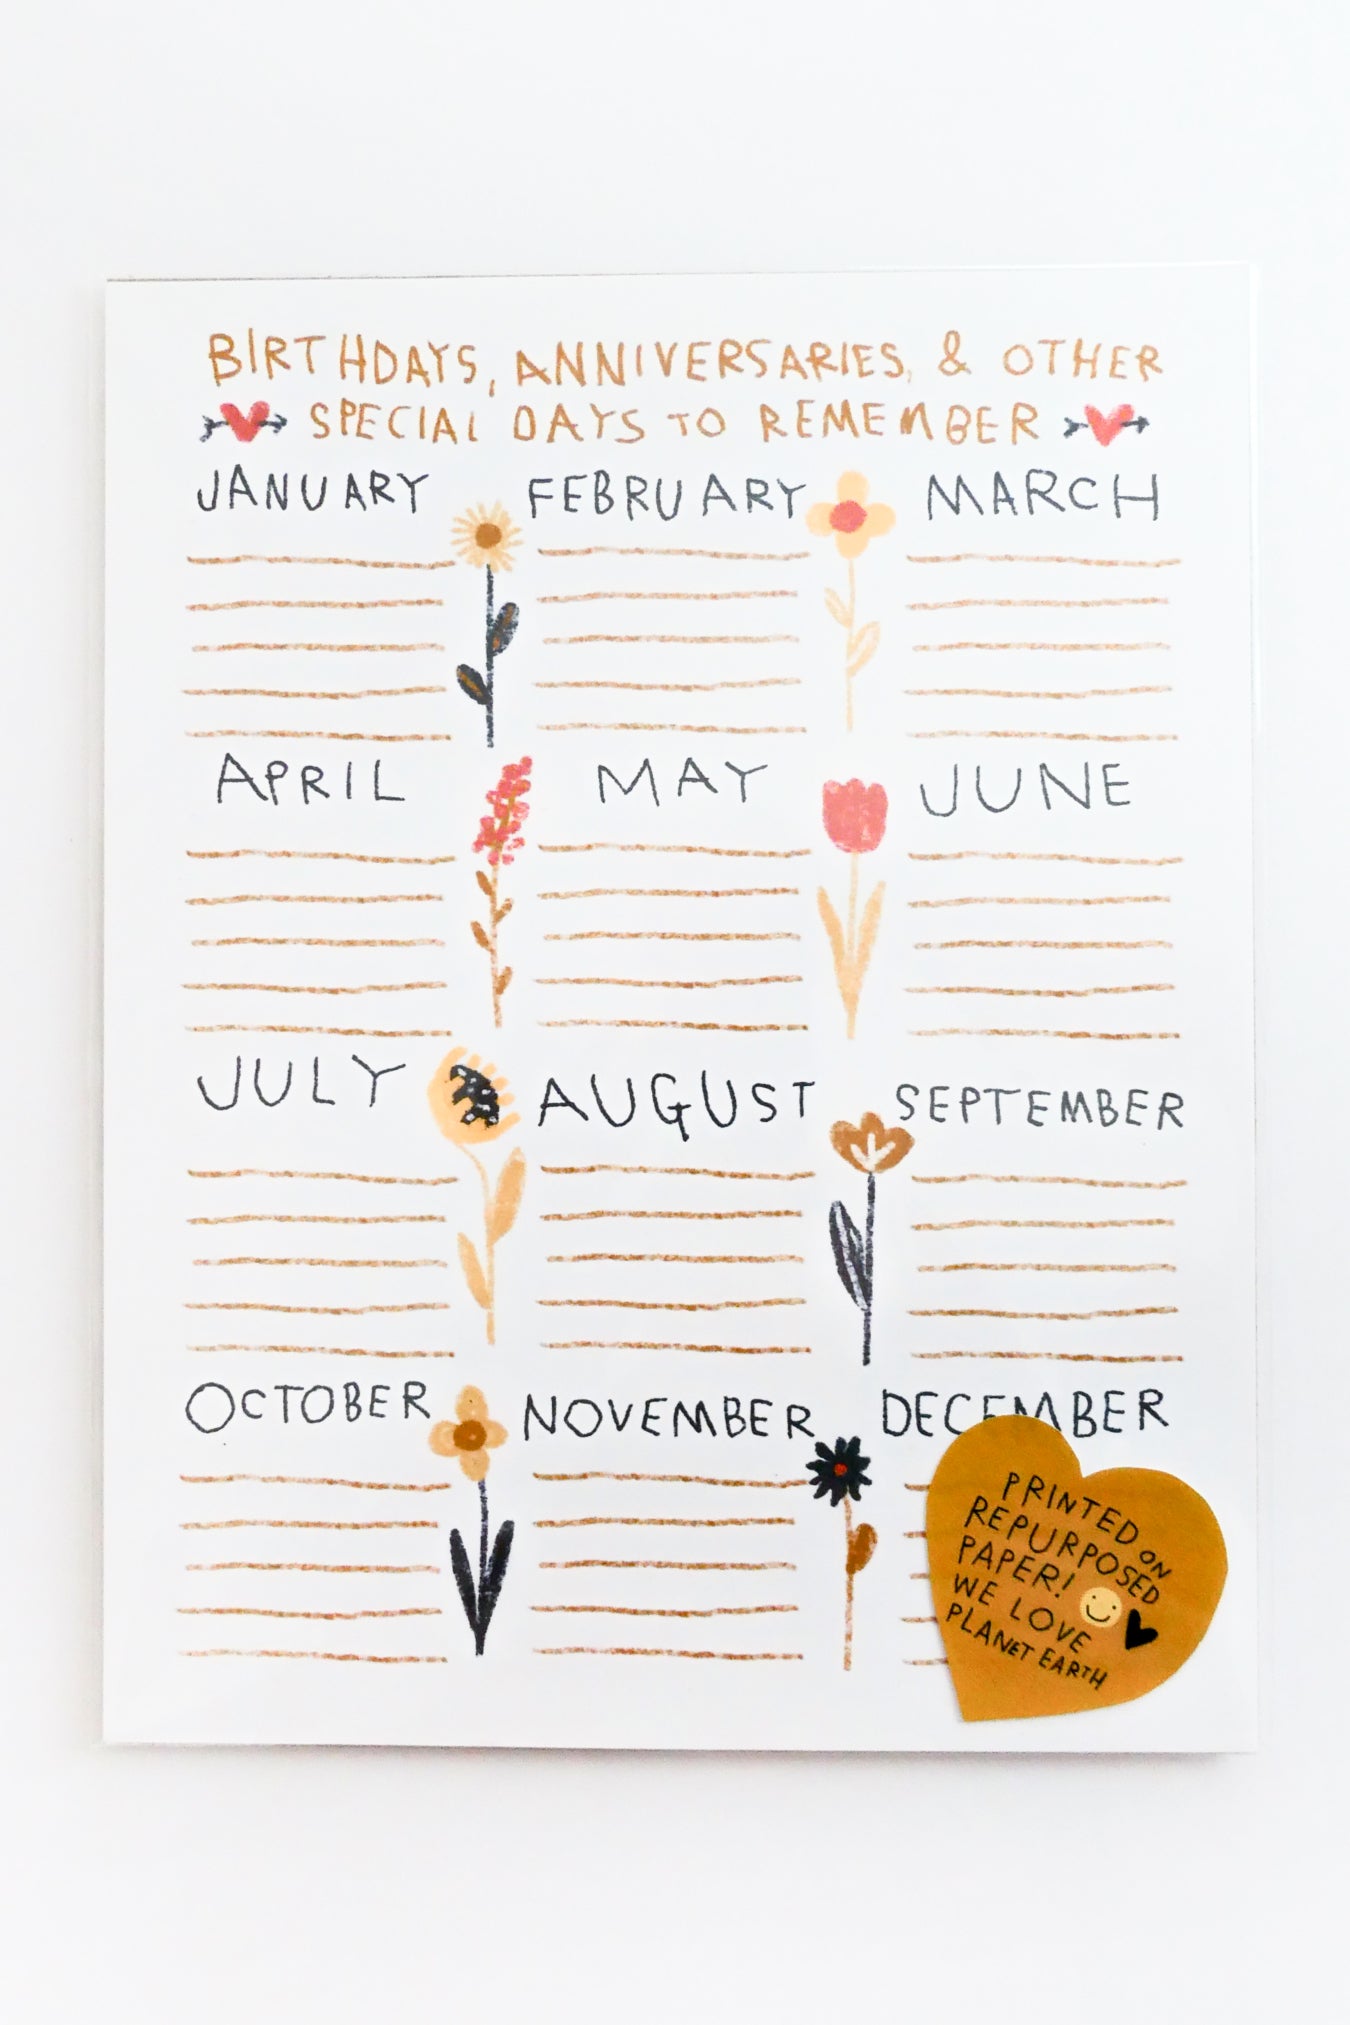 BIRTHDAYS, ANNIVERSARIES, & OTHER
SPECIAL DAYS TO REMEMBER
JANUARY
FEBRUARY
MARCH
APRIL
MAY
JUNE
JULY
AUGUST
SEPTEMBER
OCTOBER
NOVEMBER
DECEMBER
PRINTED ON
REPURPOSED
PAPER!
WE LOVE
PLANET EARTH